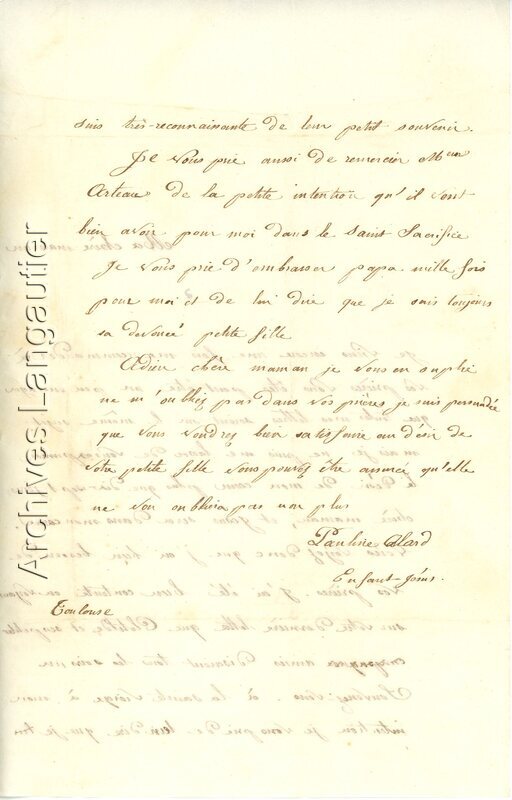 suis très-reconnaissante de leur petit souvenir.
Je vous prie aussi de remercier Meur
Arteau de la petite intention qu'il vont
bien avoir pour moi dans le saint Sacrifice
Je vous prie d'embrasser papa mille fois
pour moi et de lui dire que je suis toujours
sa devoueé petite fille
Adieu chère maman je vous en suplie
ne m'oubliez pas dans vos prières je suis persuadée
que vous voudrez bien satisfaire au désir de
votre petite fille vous pouvez être assurée qu'elle
ne vou oubliera pas non plus
Pauline Alard
Enfant-Jésus.
Toulouse
Archives Langautier